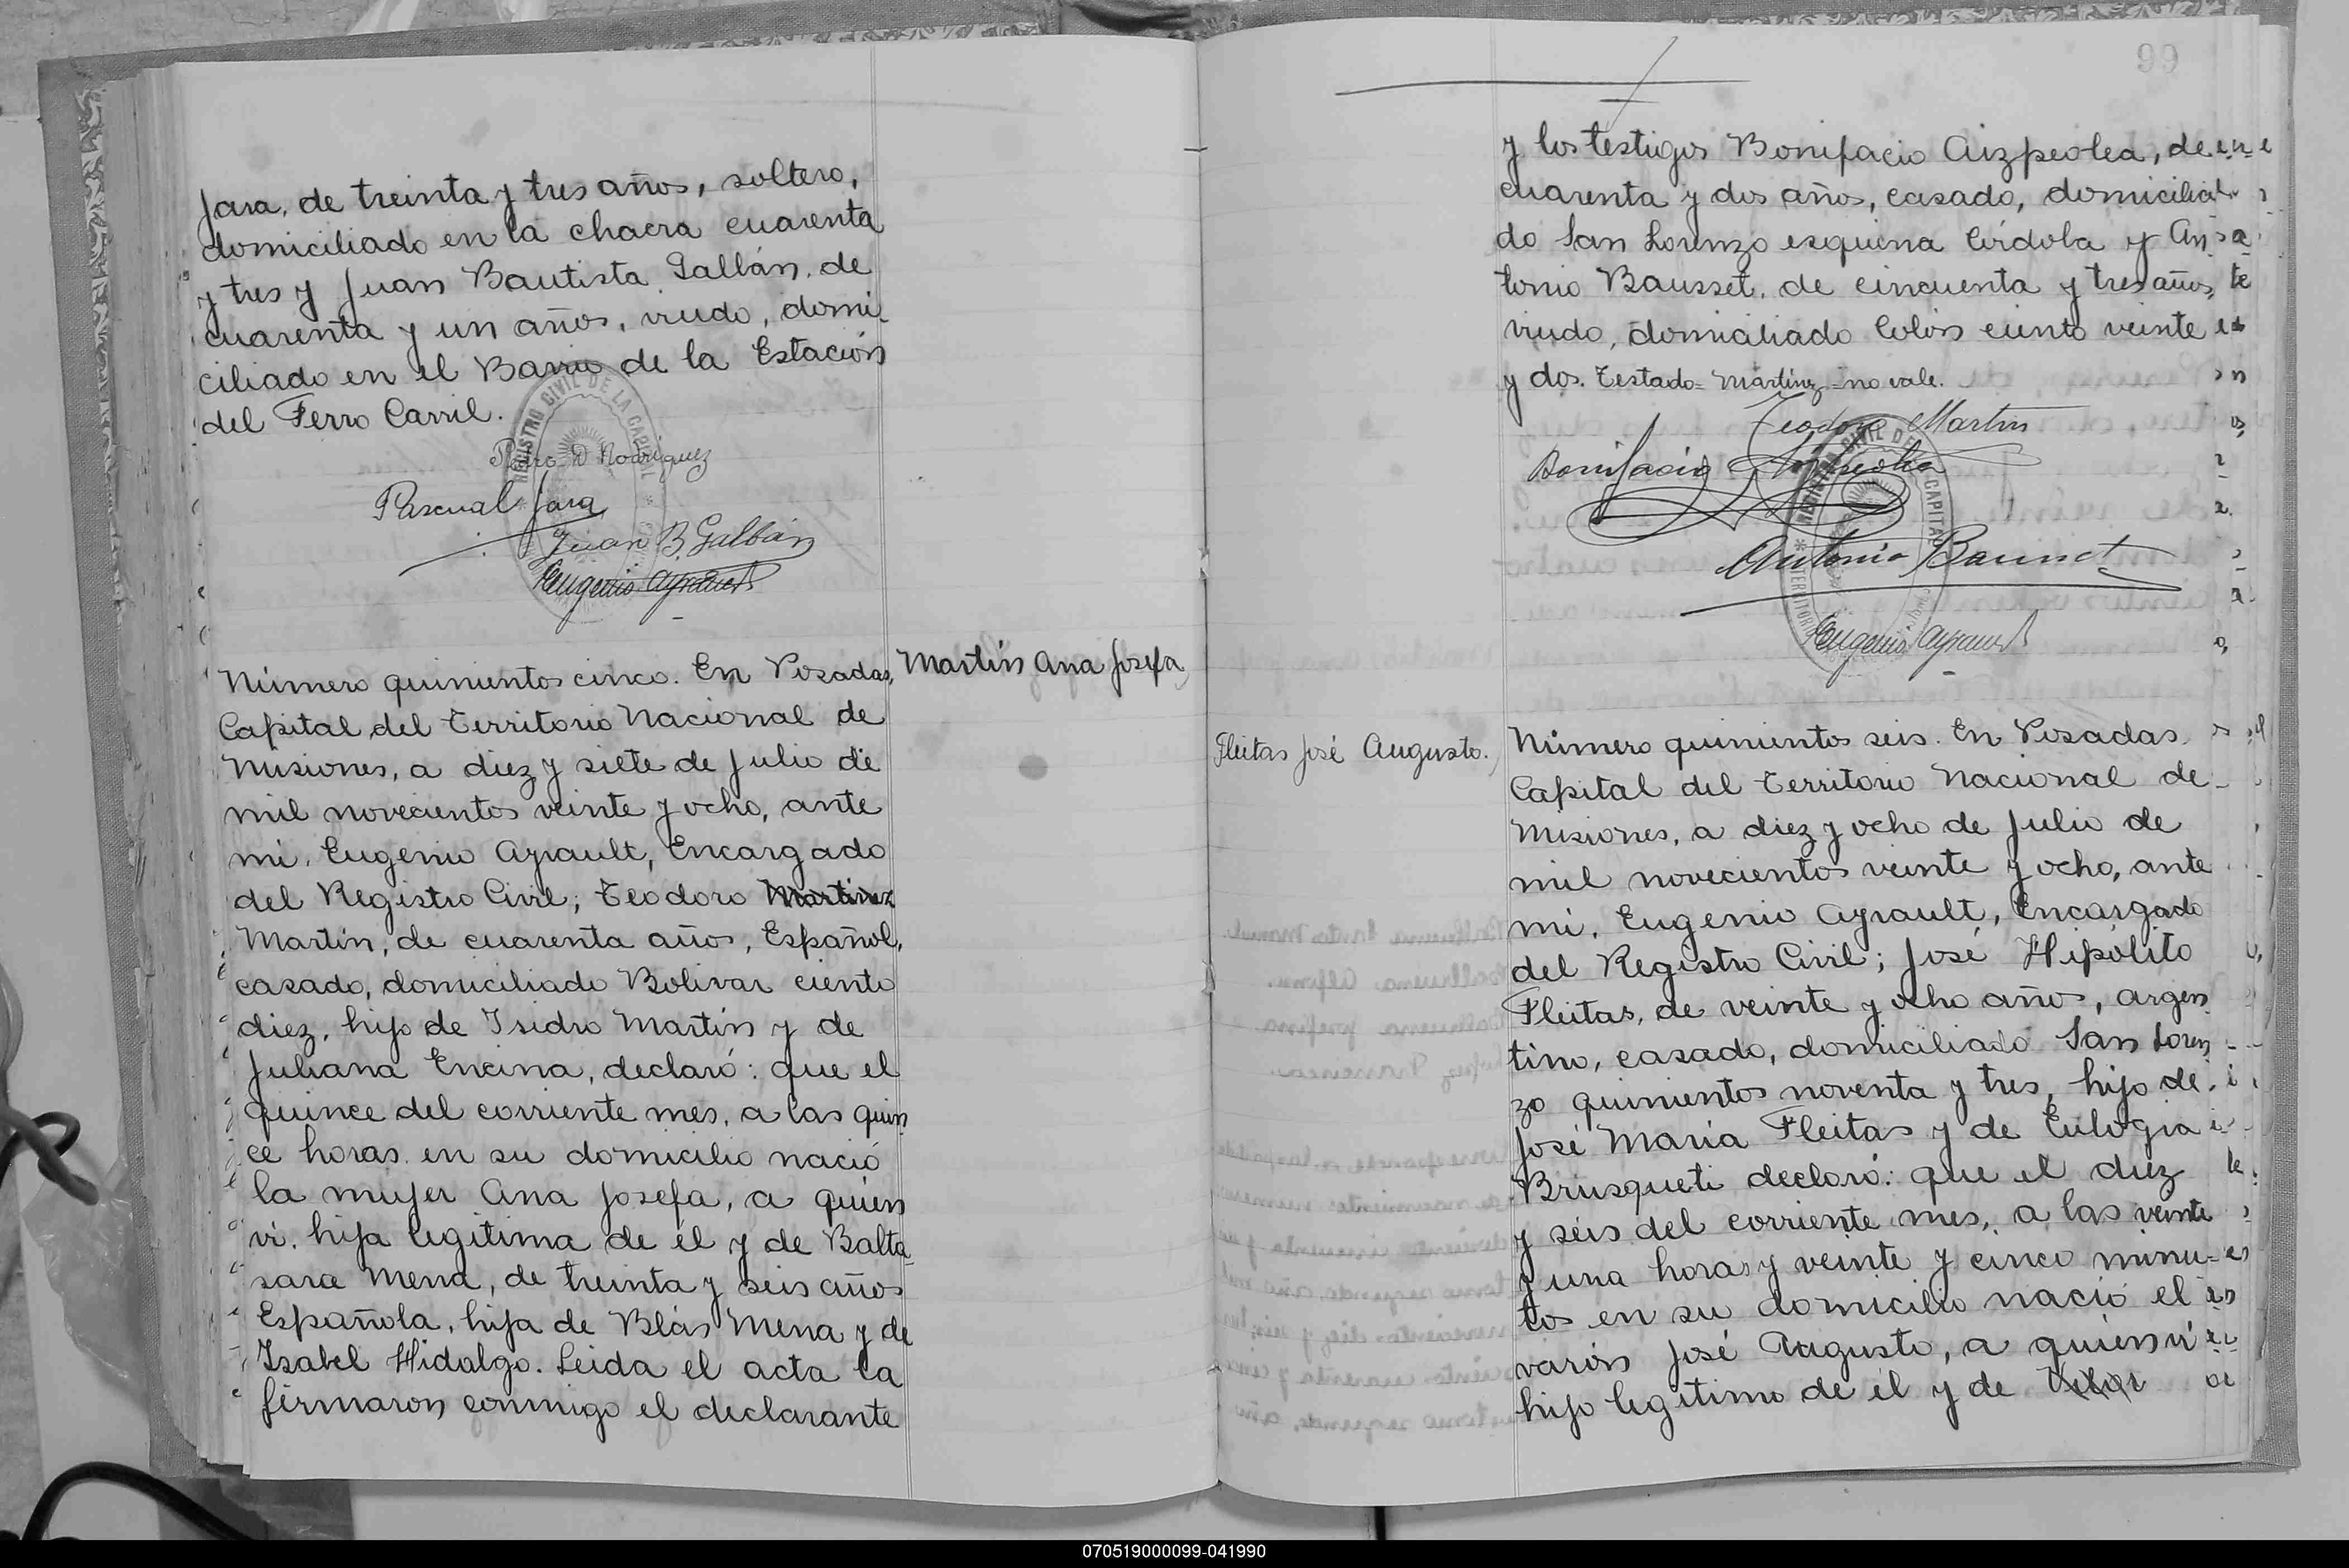 Jara, de treinta y tres años, soltero,
domiciliado en la chacra cuarenta
y tres y Juan Bautista Galbán, de
cuarenta y un años, viudo, domi-
ciliado en el Barrio de la Estación
del Ferro Carril.
REGISTRO CIVIL DE LA CAPITAL
Pedro D Rodriguez
Pascual Jara
Juan B. Galbán
Eugenio Ayrault
Número quinientos cinco. En Posadas,
Capital del Territorio Nacional de
Misiones, a diez y siete de Julio de
mil novecientos veinte y ocho, ante
mi, Eugenio Ayrault, Encargado
del Registro Civil; Teodoro Martinez
Martin, de cuarenta años, Español,
casado, domiciliado Bolivar ciento
diez, hijo de Isidro Martin y de
Juliana Encina, declaró: que el
quince del corriente mes, a las quin
ce horas en su domicilio nació
la mujer Ana Josefa, a quien
vi, hija legitima de él y de Balta-
sara Mena, de treinta y seis años
Española, hija de Blás Mena y de
Isabel Hidalgo. Leida el acta la
firmaron conmigo el declarante
Martin Ana Josefa
99
y los testigos Bonifacio Aizpeolea, de
cuarenta y dos años, casado, domicilia
do San Lorenzo esquina Córdola y An
tonio Bausset, de cincuenta y tres años,
viudo, domiciliado Colón ciento veinte
y dos. Testado= Martinez =no vale.
Teodoro Martin
Bonifacio Aizpeolea
REGISTRO CIVIL DE LA CAPITAL
Antonio Bausset
Eugenio Ayrault
Fleitas José Augusto.
Número quinientos seis. En Posadas
Capital del Territorio Nacional de
Misiones, a diez y ocho de Julio de
mil novecientos veinte y ocho, ante
mi, Eugenio Ayrault, Encargado
del Registro Civil; José Hipólito
Fleitas, de veinte y ocho años, argen
tino, casado, domiciliado San Loren
zo quinientos noventa y tres, hijo de
José Maria Fleitas y de Eulogia
Brusqueti declaró: que el diez
y seis del corriente mes, a las veinte
y una horas y veinte y cinco minu-
tos en su domicilio nació el
varón José Augusto, a quien vi
hijo legitimo de él y de
070519000099-041990